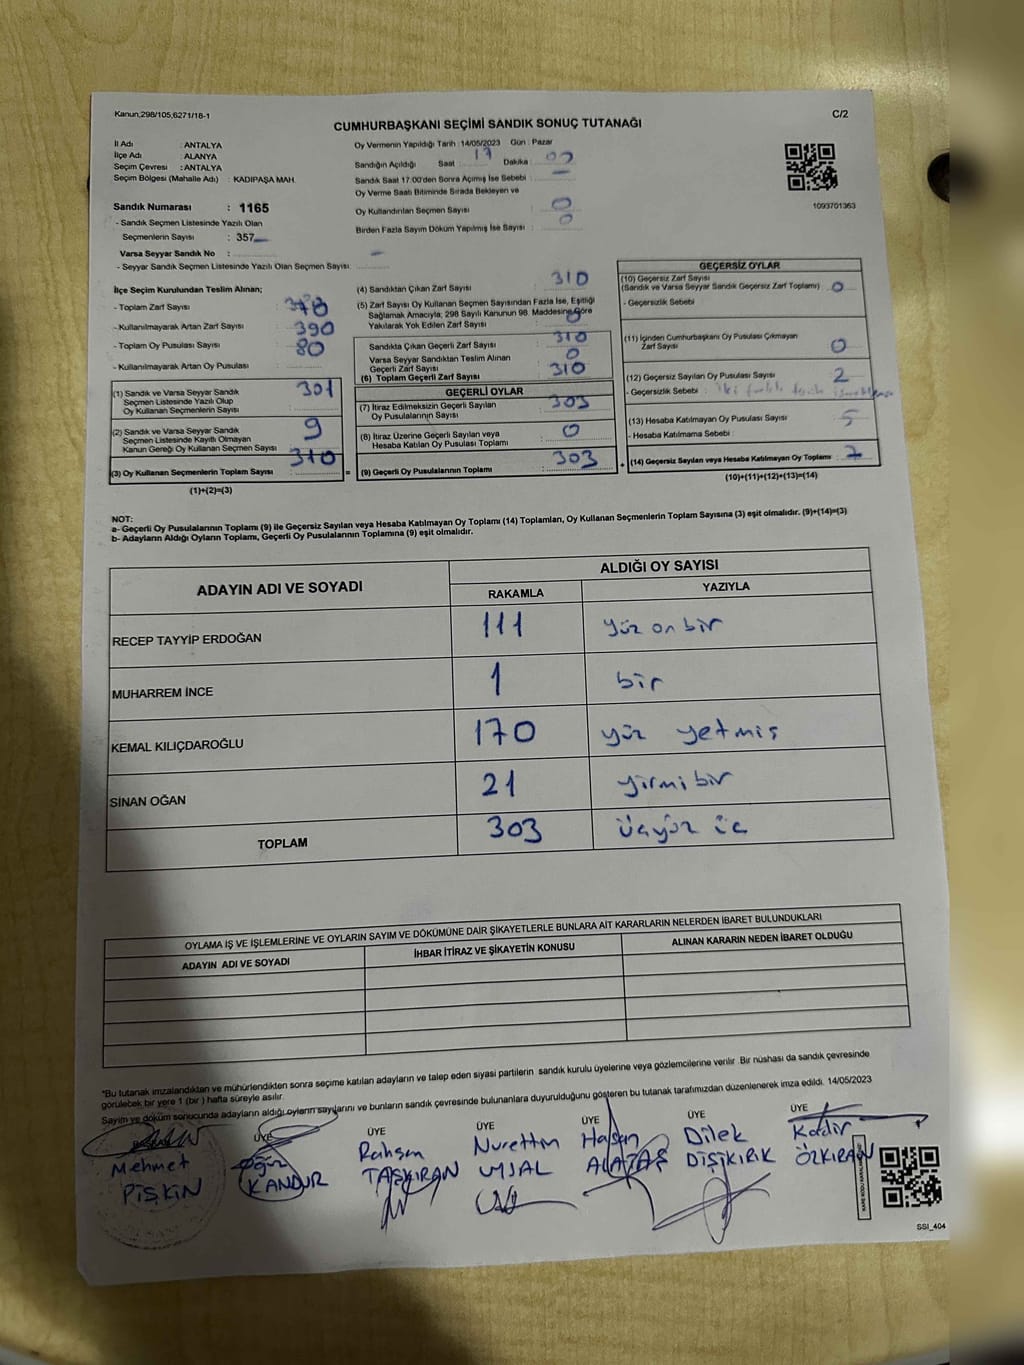 Kanun,298/105,6271/18-1
C/2
CUMHURBAŞKANI SEÇİMİ SANDIK SONUÇ TUTANAĞI
İl Adı : ANTALYA
İlçe Adı : ALANYA
Seçim Çevresi : ANTALYA
Seçim Bölgesi (Mahalle Adı) : KADIPAŞA MAH.
Oy Vermenin Yapıldığı Tarih : 14/05/2023 Gün : Pazar
Sandığın Açıldığı Saat : 17 Dakika :
Sandık Saat 17:00'den Sonra Açmış İse Sebebi : —
Oy Verme Saati Bitiminde Sırada Bekleyen ve
Oy Kullandırılan Seçmen Sayısı : 0
Birden Fazla Sayım Döküm Yapılmış İse Sayısı : 0
1093701363
Sandık Numarası : 1165
- Sandık Seçmen Listesinde Yazılı Olan
Seçmenlerin Sayısı : 357
Varsa Seyyar Sandık No : —
- Seyyar Sandık Seçmen Listesinde Yazılı Olan Seçmen Sayısı :
İlçe Seçim Kurulundan Teslim Alınan;
- Toplam Zarf Sayısı :
- Kullanılmayarak Artan Zarf Sayısı : 390
- Toplam Oy Pusulası Sayısı : 80
- Kullanılmayarak Artan Oy Pusulası :
(1) Sandık ve Varsa Seyyar Sandık
Seçmen Listesinde Yazılı Olup
Oy Kullanan Seçmenlerin Sayısı : 301
(2) Sandık ve Varsa Seyyar Sandık
Seçmen Listesinde Kayıtlı Olmayan
Kanun Gereği Oy Kullanan Seçmen Sayısı : 9
(3) Oy Kullanan Seçmenlerin Toplam Sayısı : 310
(1)+(2)=(3)
(4) Sandıktan Çıkan Zarf Sayısı : 310
(5) Zarf Sayısı Oy Kullanan Seçmen Sayısından Fazla İse, Eşitliği
Sağlamak Amacıyla; 298 Sayılı Kanunun 98. Maddesine Göre
Yakılarak Yok Edilen Zarf Sayısı : 0
Sandıkta Çıkan Geçerli Zarf Sayısı : 310
Varsa Seyyar Sandıktan Teslim Alınan
Geçerli Zarf Sayısı : 0
(6) Toplam Geçerli Zarf Sayısı : 310
GEÇERLİ OYLAR
(7) İtiraz Edilmeksizin Geçerli Sayılan
Oy Pusulalarının Sayısı : 303
(8) İtiraz Üzerine Geçerli Sayılan veya
Hesaba Katılan Oy Pusulası Toplamı : 0
(9) Geçerli Oy Pusulalarının Toplamı : 303
GEÇERSİZ OYLAR
(10) Geçersiz Zarf Sayısı
(Sandık ve Varsa Seyyar Sandık Geçersiz Zarf Toplamı) : 0
- Geçersizlik Sebebi :
(11) İçinden Cumhurbaşkanı Oy Pusulası Çıkmayan
Zarf Sayısı : 0
(12) Geçersiz Sayılan Oy Pusulası Sayısı : 2
- Geçersizlik Sebebi : İki
(13) Hesaba Katılmayan Oy Pusulası Sayısı : 5
- Hesaba Katılmama Sebebi :
(14) Geçersiz Sayılan veya Hesaba Katılmayan Oy Toplamı : 7
(10)+(11)+(12)+(13)=(14)
NOT:
a- Geçerli Oy Pusulalarının Toplamı (9) ile Geçersiz Sayılan veya Hesaba Katılmayan Oy Toplamı (14) Toplamları, Oy Kullanan Seçmenlerin Toplam Sayısına (3) eşit olmalıdır. (9)+(14)=(3)
b- Adayların Aldığı Oyların Toplamı, Geçerli Oy Pusulalarının Toplamına (9) eşit olmalıdır.
ADAYIN ADI VE SOYADI
ALDIĞI OY SAYISI
RAKAMLA YAZIYLA
RECEP TAYYİP ERDOĞAN 111 yüz on bir
MUHARREM İNCE 1 bir
KEMAL KILIÇDAROĞLU 170 yüz yetmiş
SİNAN OĞAN 21 yirmi bir
TOPLAM 303 üçyüz üç
OYLAMA İŞ VE İŞLEMLERİNE VE OYLARIN SAYIM VE DÖKÜMÜNE DAİR ŞİKAYETLERLE BUNLARA AİT KARARLARIN NELERDEN İBARET BULUNDUKLARI
ADAYIN ADI VE SOYADI İHBAR İTİRAZ VE ŞİKAYETİN KONUSU ALINAN KARARIN NEDEN İBARET OLDUĞU
*Bu tutanak imzalandıktan ve mühürlendikten sonra seçime katılan adayların ve talep eden siyasi partilerin sandık kurulu üyelerine veya gözlemcilerine verilir. Bir nüshası da sandık çevresinde
görülebilecek bir yere 1 (bir) hafta süreyle asılır.
Sayım ve döküm sonucunda adayların aldığı oyların sayılarını ve bunların sandık çevresinde bulunanlara duyurulduğunu gösteren bu tutanak tarafımızdan düzenlenerek imza edildi. 14/05/2023
ÜYE ÜYE ÜYE ÜYE ÜYE ÜYE
Mehmet PİŞKİN
KANDUR
Rahşan TAŞKIRAN
Nurettin UYSAL
Hasan ALATAŞ
Dilek DİŞİKIRIK
Kadir ÖZKIRAN
SSI_404